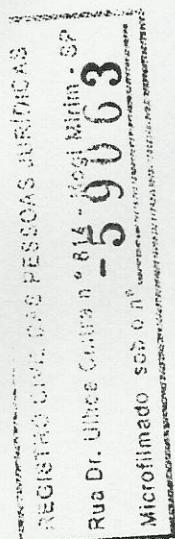 REGISTRO CIVIL DAS PESSOAS JURIDICAS
Rua Dr. Ulhoa Cintra nº 814 - Mogi Mirim - SP
-59063
Microfilmado sob o nº